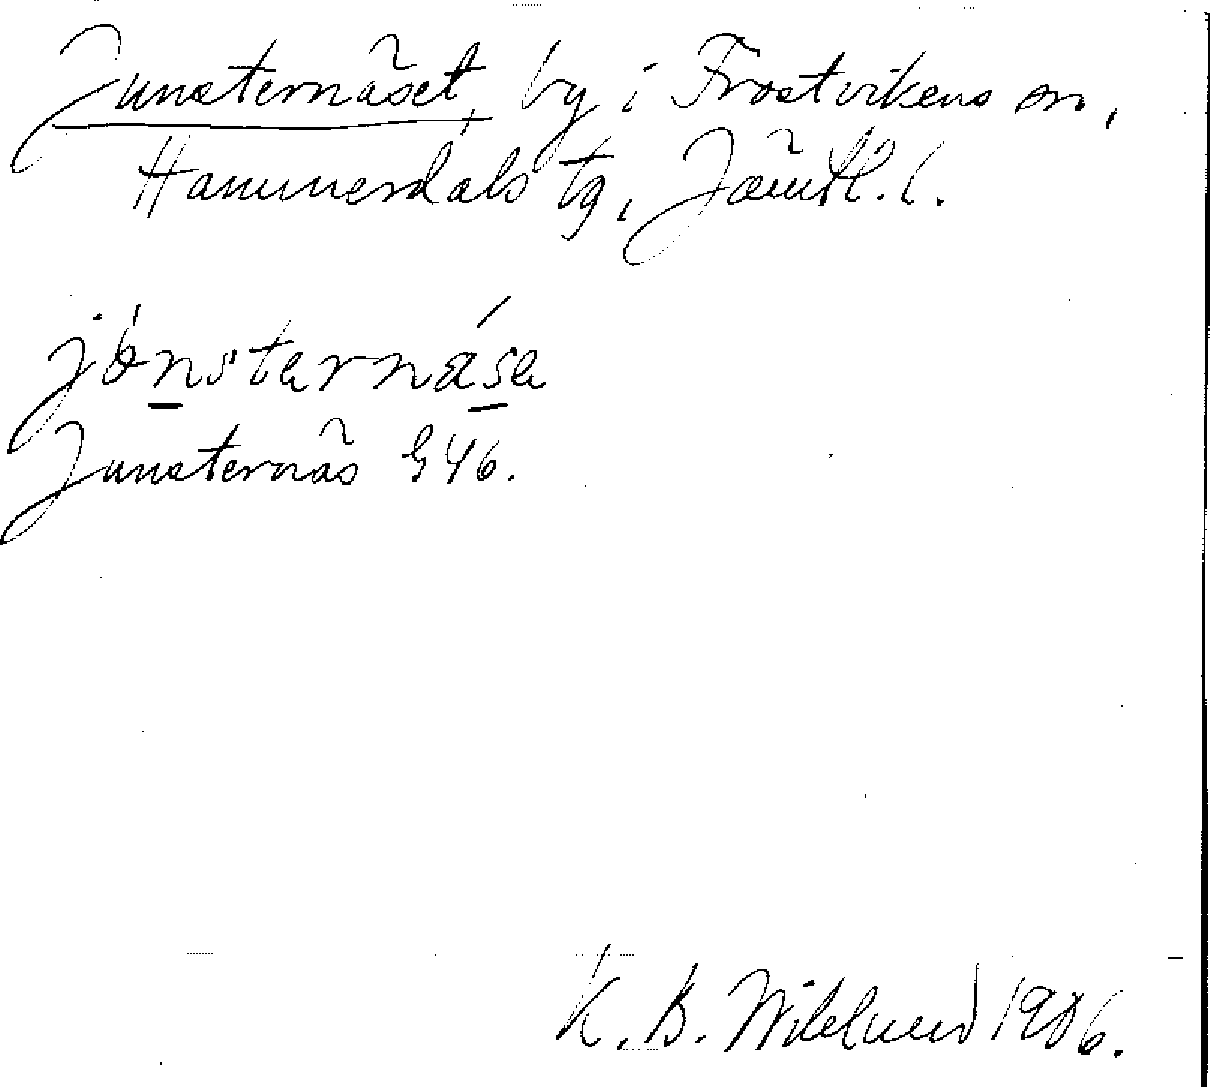 Junsternäset, by i Frostvikens sn,
Hammerdals tg, Jämtl. l.
jónsternǽse
Junsternäs G46.
K. B. Wiklund 1906.